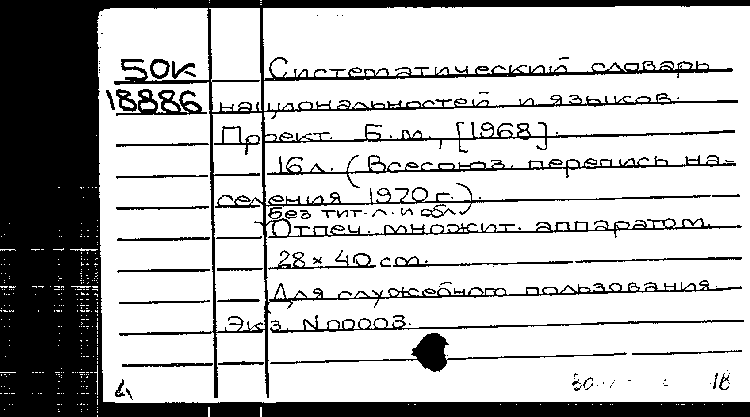 50К Систематический словарь
18886 национальностей и языков.
Проект. Б.м., [1968].
16л. (Всесоюз. перепись на-
селения 1970г.).
Без тит. л. и обл.
Отпеч. множит. аппаратом.
28 × 40 см.
Для служебного пользования
Экз. N00003.
18